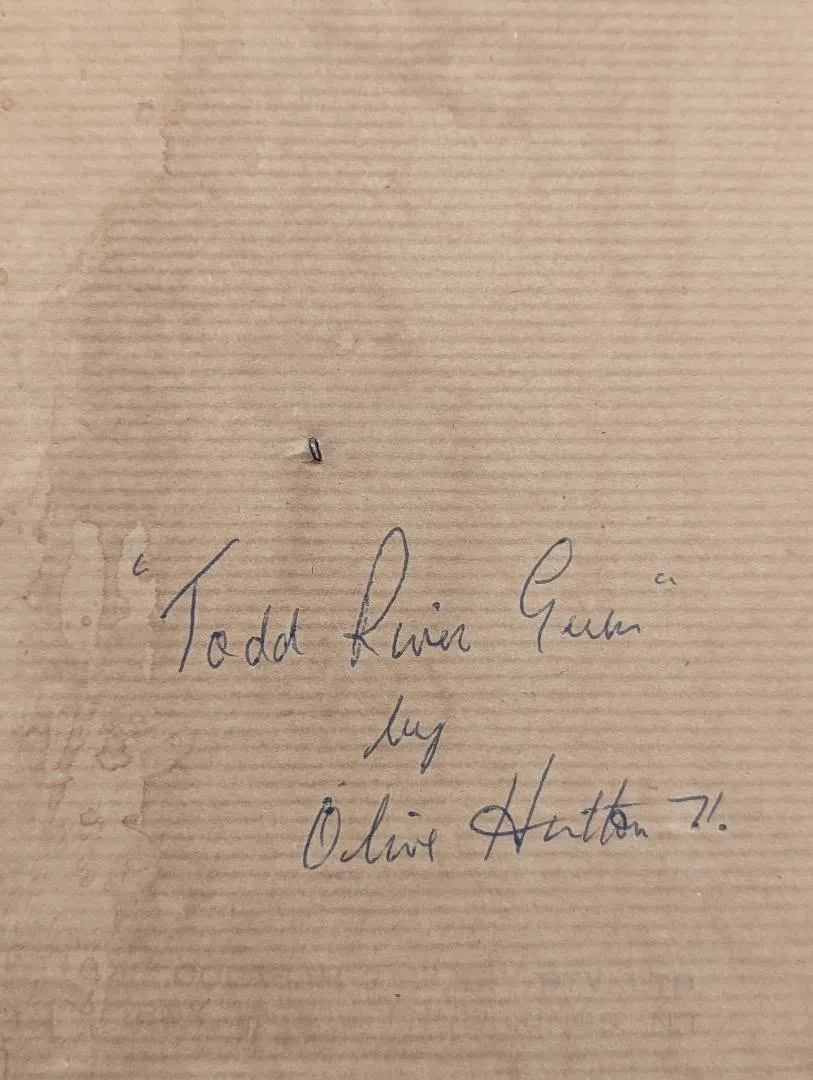 "Todd River Gum"
by
Olive Hutton 71.